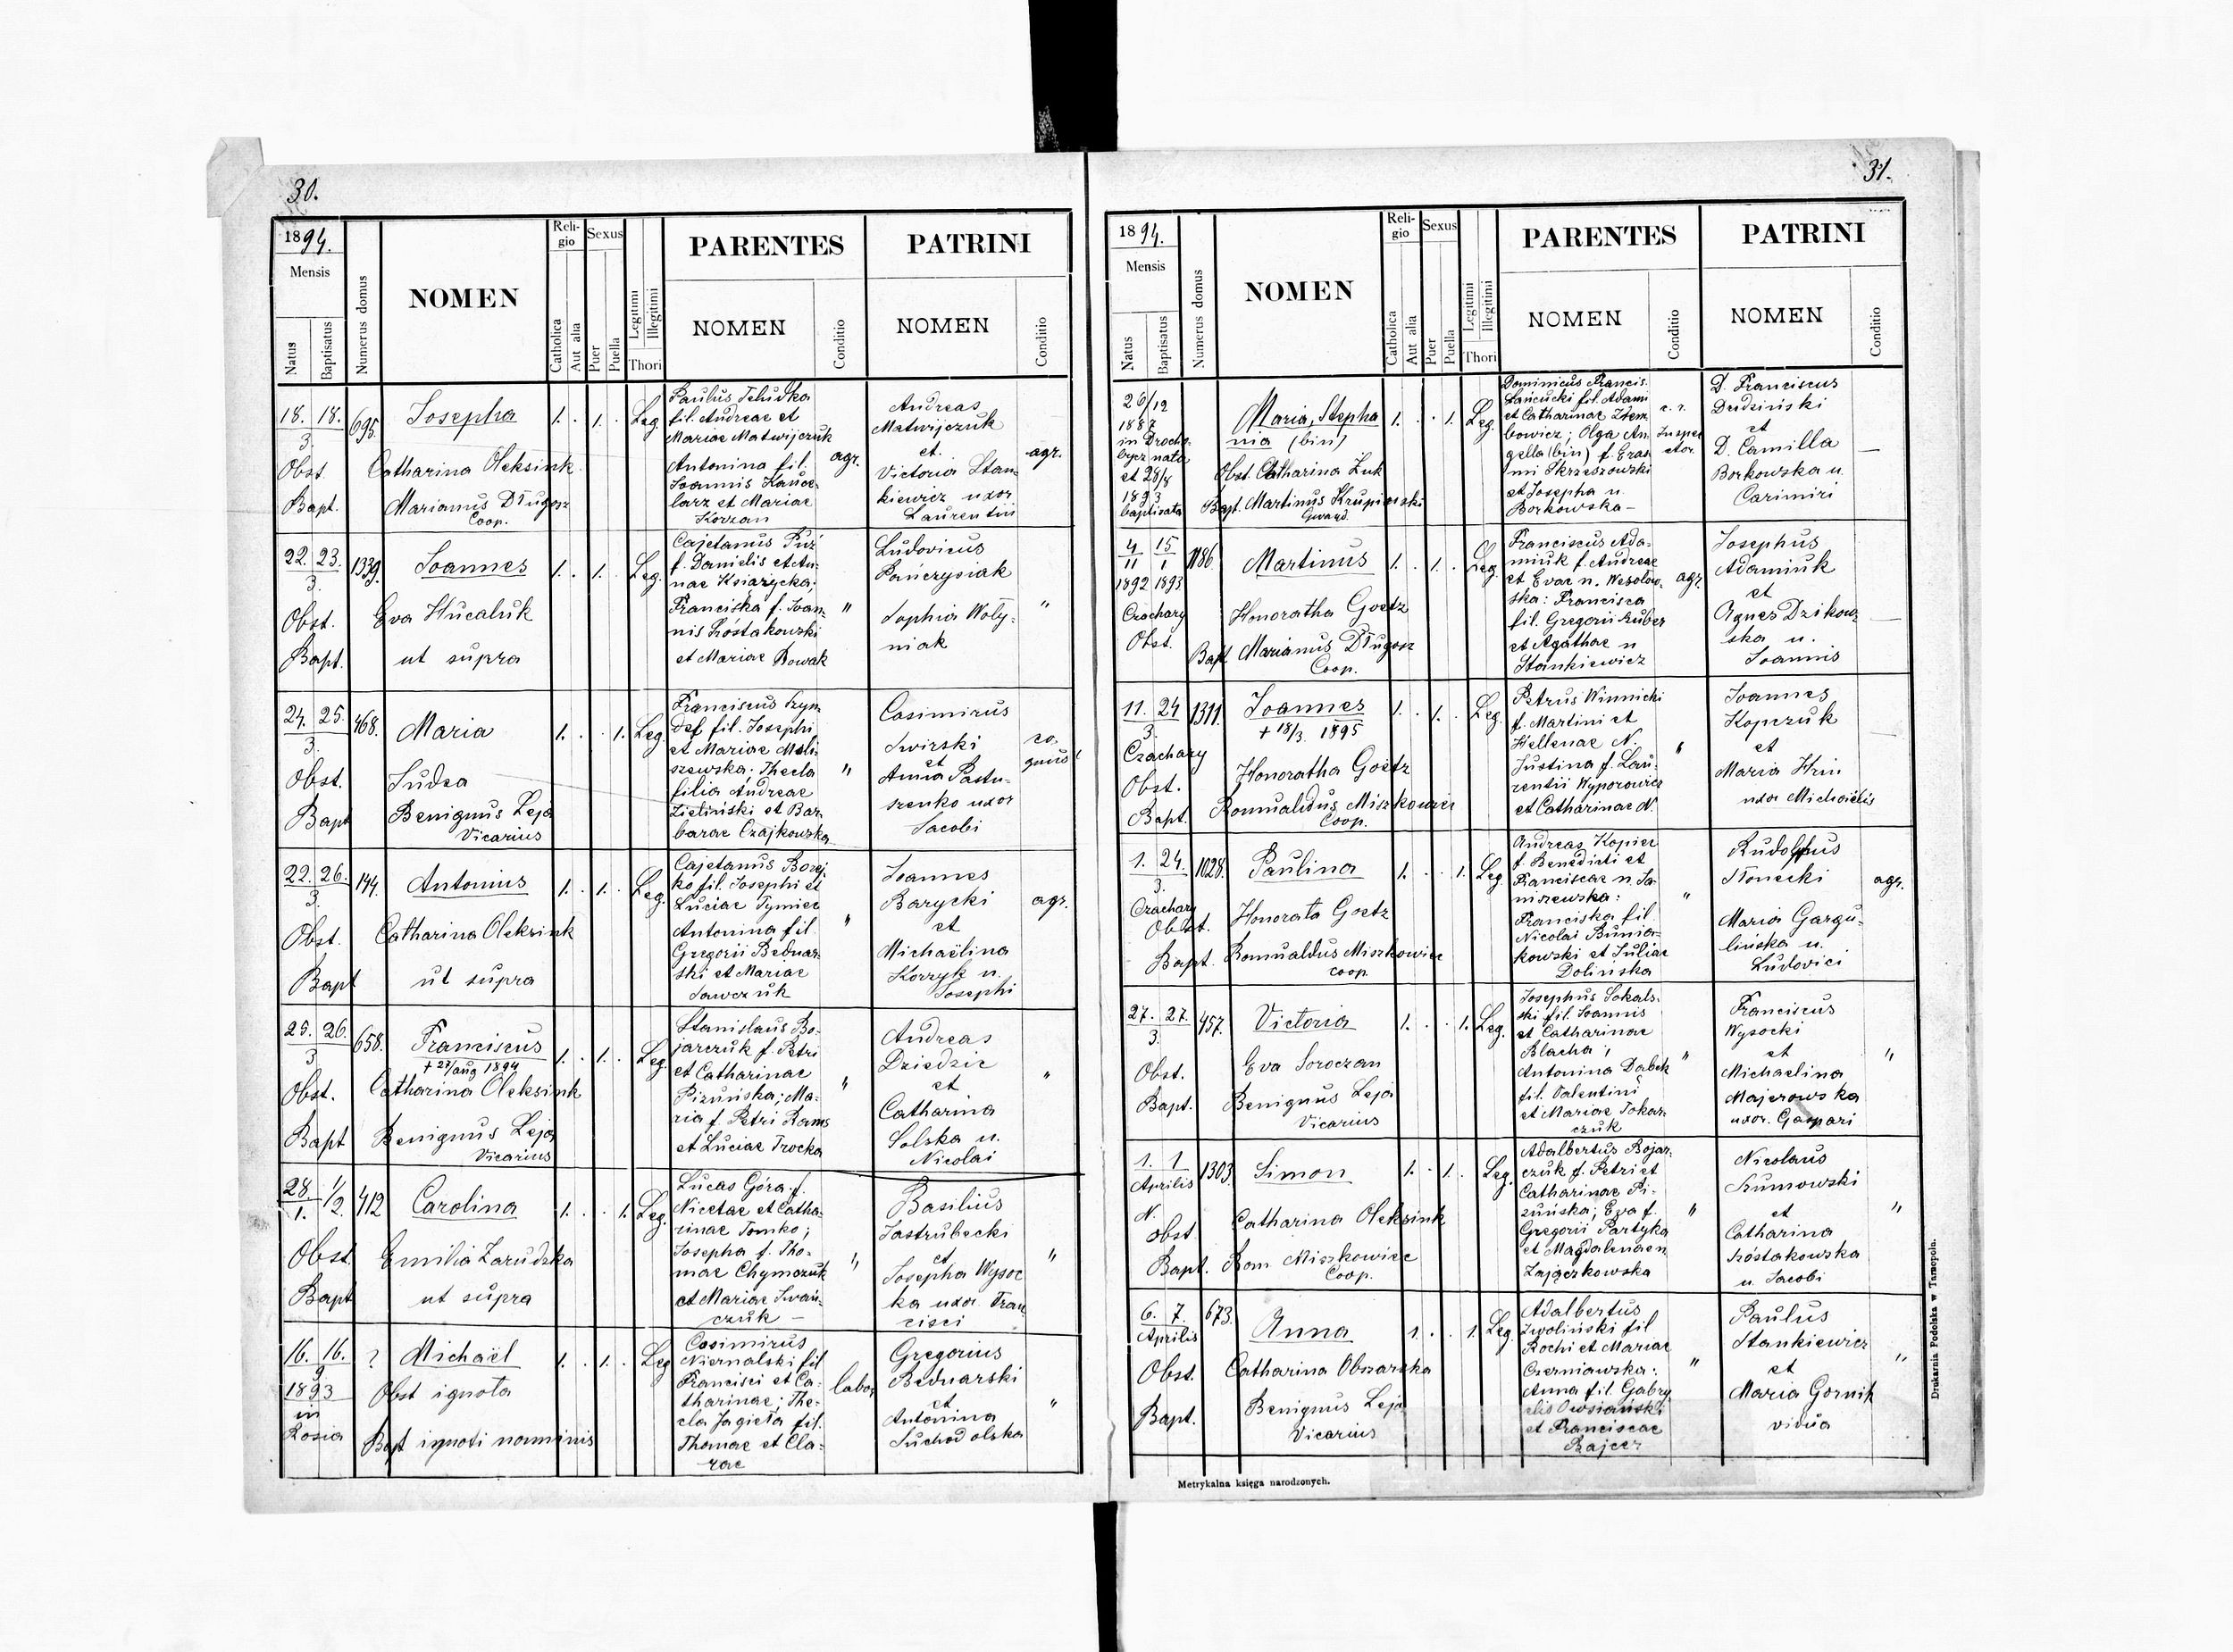 30.
1894.
Mensis
Natus
Baptisatus
Numerus domus
NOMEN
Reli-
gio
Catholica
Aut alia
Sexus
Puer
Puella
Legitimi
Illegitimi
Thori
PARENTES
NOMEN
Conditio
PATRINI
NOMEN
Conditio
18. 18.
3.
695.
Josepha
1. . 1. .
Leg.
Obst. Catharina Oleksiuk
Bapt. Marianus Długosz
Coop.
Paulus
fil. Andreae et
Mariae Matwijczuk
Antonina fil.
Joannis Kance-
larz et Mariae
Korzan
agr.
Andreas
Matwijczuk
et.
Victoria Stan-
kiewicz uxor
Laurentii
agr.
22. 23.
3.
1339.
Joannes
1. . 1. .
Leg.
Obst. Eva Hucaluk
Bapt. ut supra
Cajetanus Puz
f. Danielis et An-
nae Książycka;
Franciska f. Joan-
nis Łóstakowski
et Mariae Nowak
"
Ludovicus
Pańczysiak
Sophia Woły-
niak
"
24. 25.
3.
468.
Maria
1. . . 1.
Leg.
Obst. Judea
Bapt Benignus Leja
Vicarius
Franciscus Szyn
def fil. Josephi
et Mariae Mali-
szewska; Thecla
filia Andreae
Zieliński et Bar-
barae Czajkowska
"
Casimirus
Swirski
et
Anna Pastu-
szenko uxor
Jacobi
22. 26.
3.
144.
Antonius
1. . 1. .
Leg.
Obst. Catharina Oleksiuk
Bapt ut supra
Cajetanus Borej-
ko fil. Josephi et
Luciae Tymiec
Antonina fil.
Gregorii Bednar-
ski et Mariae
Sawczuk
"
Joannes
Barycki
et
Michaëlina
Korzyk u.
Josephi
agr.
25. 26.
3
658.
Franciscus
+ 27/aug 1894
1. . 1. .
Leg.
Obst. Catharina Oleksiuk
Bapt Benignus Leja
Vicarius
Stanislaus Bo-
jarczuk f. Petri
et Catharinae
Pizuńska; Ma-
ria f. Petri Rams
et Luciae Trocka
"
Andreas
Dziedzic
et
Catharina
Solska u.
Nicolai
"
28. 1/2
1.
412
Carolina
1. . . 1.
Leg.
Obst. Emilia Zarudzka
Bapt ut supra
Lucas Góra f.
Nicetae et Catha-
rinae Tomko;
Josepha f. Tho-
mae Chymczuk
et Mariae Iwań-
czuk –
"
Basilius
Jastrubecki
et
Josepha Wysoc
ka uxor Fran
cisci
"
16. 16.
9
1893
in
Rosia
?
Michaël
1. . 1. .
Leg
Obst ignota
Bapt ignoti nominis
Casimirus
Niernalski fil
Francisci et Ca-
tharinae; The-
cla Jagieła fil.
Thomae et Cla-
rae
labor
Gregorius
Bednarski
et
Antonina
Suchodolska
"
31.
1894.
Mensis
Natus
Baptisatus
Numerus domus
NOMEN
Reli-
gio
Catholica
Aut alia
Sexus
Puer
Puella
Legitimi
Illegitimi
Thori
PARENTES
NOMEN
Conditio
PATRINI
NOMEN
Conditio
26/12
1887
in Droho-
bycz nata
et 28/8
1893
baptisata
Maria, Stepha
nia (bin)
1. . . 1.
Leg.
Obst. Catharina Zuk
Bapt. Martinus Krupinski
Gward.
Dominicus Francis.
Łancucki fil. Adami
et Catharinae
bowicz; Olga An-
gella (bin) f. Eras
mi Skrzeszowski
et Josepha u.
Borkowska –
c. r.
Inspec
ctor
D. Franciscus
Dudziński
et
D. Camilla
Borkowska u.
Carimiri
—
4 15
11 1
1892 1893
1186
Martinus
1. . 1. .
Leg.
Czachary
Obst. Honoratha Goetz
Bapt Marianus Długosz
Coop.
Franciscus Ada-
miuk f. Andreae
et Evae n. Wesołow-
ska: Francisca
fil. Gregorii Huber
et Agathae n
Stankiewicz
agr.
Josephus
Adamiuk
et
Agnes Dzikow-
ska u.
Joannis
—
11. 24
3.
1311.
Joannes
+ 18/3. 1895
1. . 1. .
Leg.
Czachary
Obst. Honoratha Goetz
Bapt. Romualdus Miszkowiec
Coop.
Petrus Winnicki
f. Martini et
Hellenae N.
Justina f. Lau-
rentii Wyporowicz
et Catharinae N.
"
Joannes
Kopczuk
et
Maria Hrin
uxor Michaëlis
1. 24.
3.
1028.
Paulina
1. . . 1.
Leg
Czachary
Obst. Honorata Goetz
Bapt. Romualdus Miszkowiec
coop.
Andreas Kopiec
f. Benedicti et
Franciscae n. Ja-
niszewska:
Franciska fil.
Nicolai Bunia-
kowski et Juliae
Dolińska
"
Rudolphus
Słonecki
Maria Gargu-
lińska u.
Ludovici
agr.
27. 27.
3.
457.
Victoria
1. . . 1.
Leg.
Obst. Eva Soroczan
Bapt. Benignus Leja
Vicarius
Josephus Sokals-
ski fil. Joannis
et Catharinae
Blacha;
Antonina Dabek
fil. Valentini
et Mariae Tokar-
czuk
"
Franciscus
Wysocki
et
Michaelina
Majerowska
uxor. Gaspari
"
1. 1
Aprilis
1303.
Simon
1. . 1. .
Leg.
N.
obst Catharina Oleksiuk
Bapt. Rom Miszkowiec
Coop.
Adalbertus Bojar-
czuk f. Petri et
Catharinae Pi-
zuńska; Eva f.
Gregorii Partyka
et Magdalenae n
Zajączkowska
"
Nicolaus
Kumowski
et
Catharina
Łóstakowska
u. Jacobi
"
6. 7.
Aprilis
673.
Anna
1. . . 1.
Leg.
Obst. Catharina Obszarska
Bapt. Benignus Leja
Vicarius
Adalbertus
Zwoliński fil
Rochi et Mariae
Czerniawska:
Anna fil. Gabry
elis Owsiański
et Franciscae
Bajcer
"
Paulus
Stankiewicz
et
Maria Gornik
vidua
"
Metrykalna księga narodzonych.
Drukarnia Podolska w Tarnopolu.